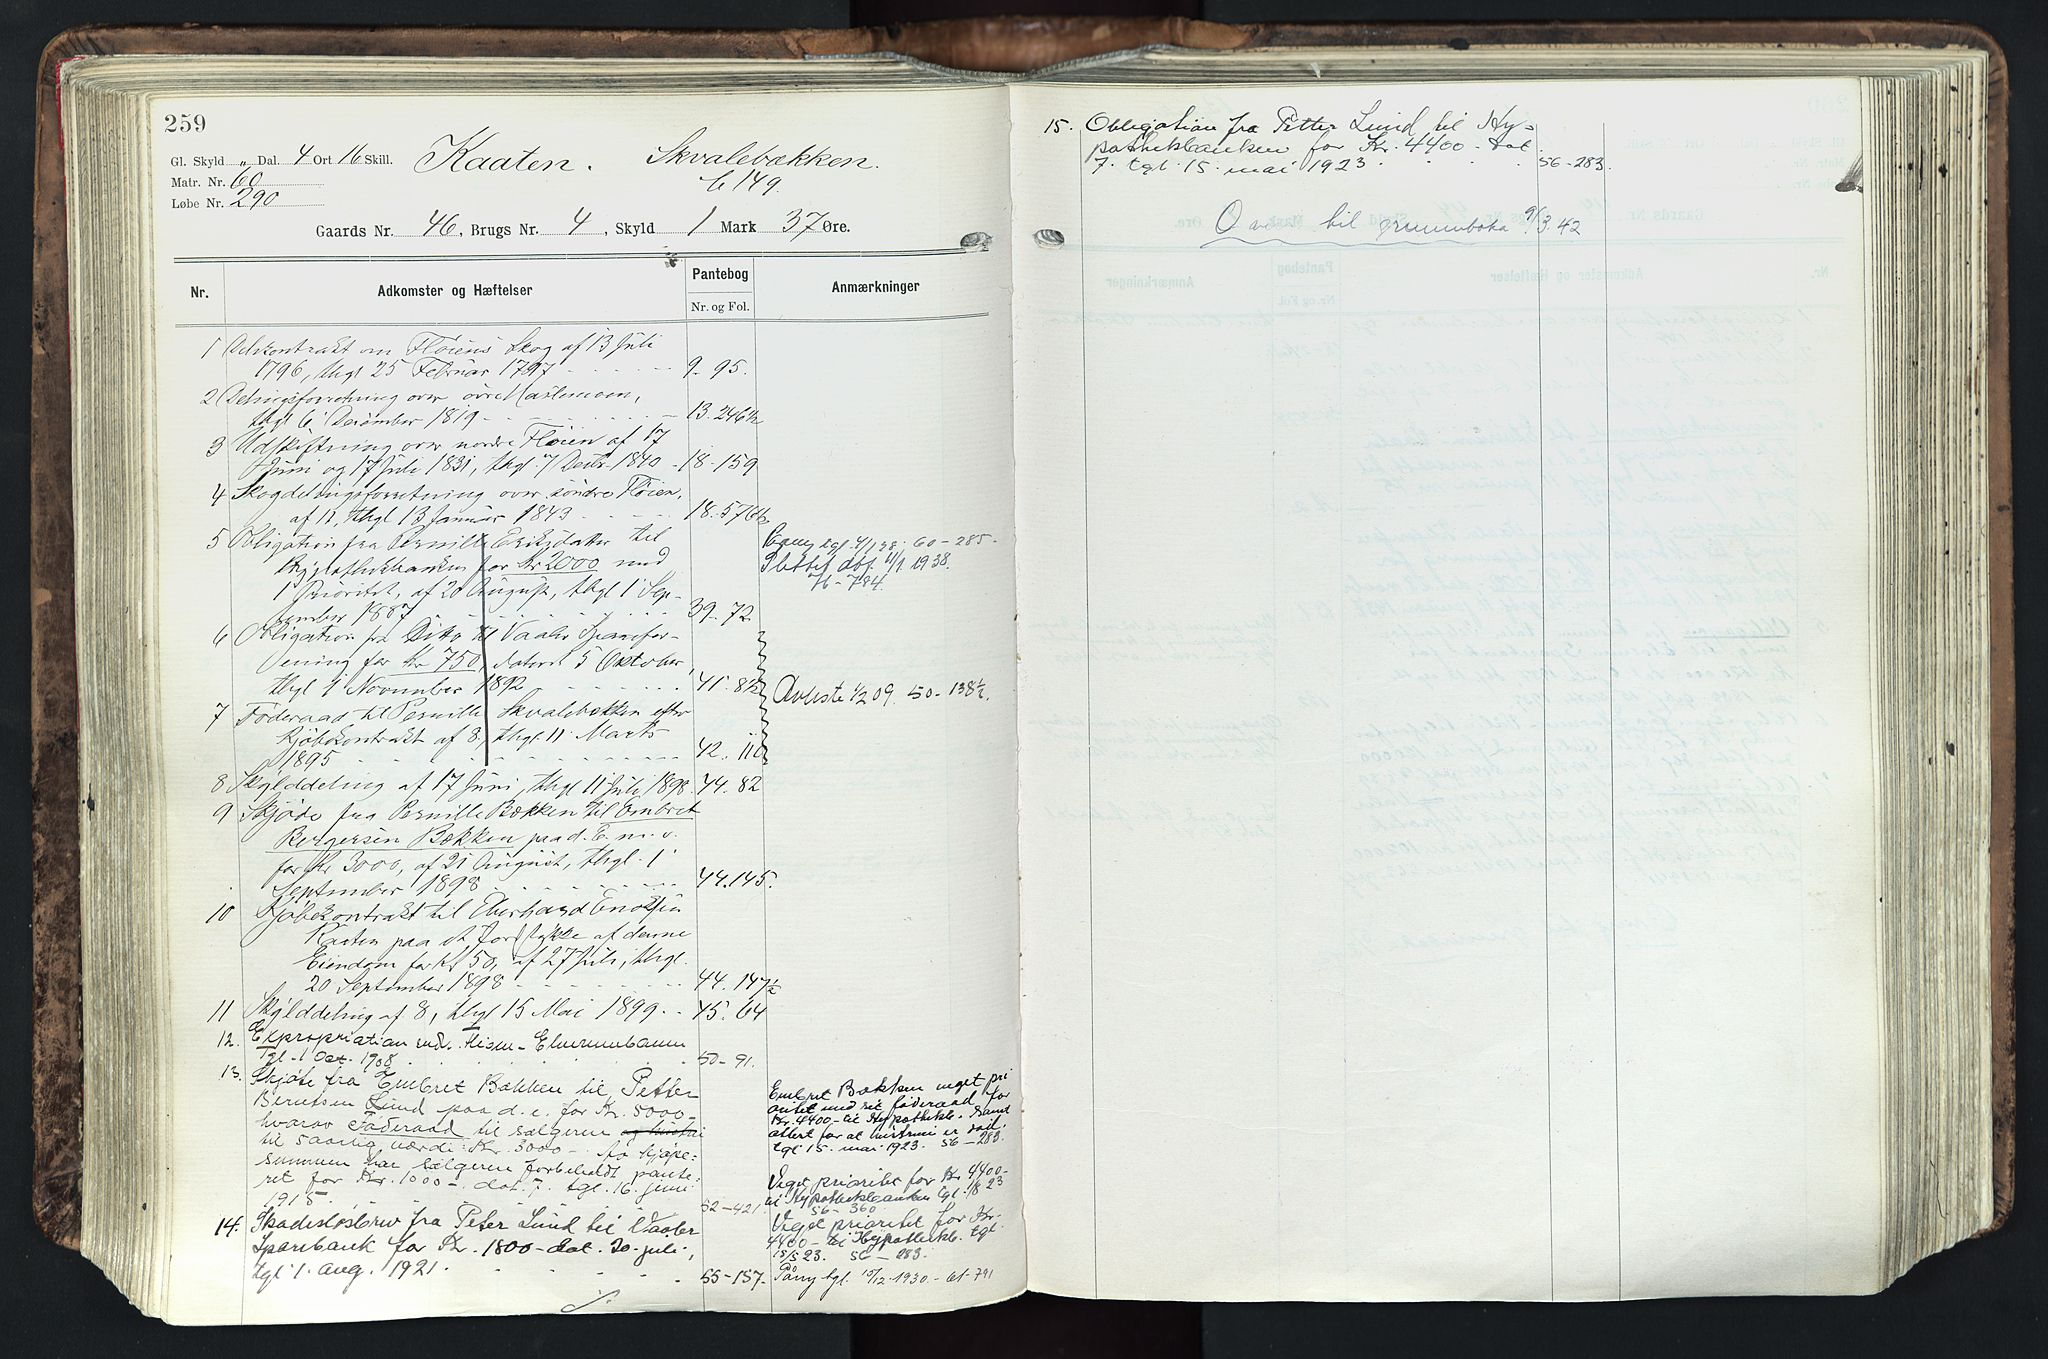 259
Gl. Skyld „ Dal. 4 Ort 16 Skill. Kaaten. Skvalebækken.
Matr. Nr. 60 149.
Løbe Nr. 290
Gaards Nr. 46, Brugs Nr. 4, Skyld 1 Mark 37 Øre.
Nr. Adkomster og Hæftelser Pantebog Nr. og Fol. Anmærkninger
1 Delekontrakt om Fløiens Skog af 13 Juli
1796, thgl 25 Februar 1797 9. 95.
2 Delingsforretning over øvre Hastemoen,
thgl 6 December 1819 13. 246½
3 Udskiftning over nordre Fløien af 17
Juni og 17 Juli 1831, thgl. 7 Decbr. 1840 18-159
4 Skogdelingsforretning over søndre Fløien,
af 12, thgl 13 Januar 1843 18. 576½
5 Obligation fra Pernille Eriksdatter til
Hypothekbanken for Kr 2000 med
1 Prioritet, af 20 August, thgl 1 Sep-
tember 1887 39. 72
Paany tgl. 4/1 38. 60-285.
Slettet dok 4/1 1938.
76-784.
6 Obligation fra Ditto til Vaaler Sparefor-
ening for Kr 750, dateret 5 Oktober,
thgl 1 November 1892 41. 8½
7 Føderaad til Pernille Skvalebækken efter
Kjøbekontrakt af 8, thgl. 11 Marts
1895 42. 110
Avleste ½ 09. 50-138½.
8 Skylddeling af 17 Juni, thgl 11 Juli 1898. 44. 82
9 Skjøde fra Pernille Bækken til Embret
Bergersen Bækken paa d. E. m. v.
for Kr 3000, af 21 August, thgl. 1
September 1898 44. 145.
10 Kjøbekontrakt til Eberhard Enotsen
Kaaten paa et Jordstykke af denne
Eiendom for Kr 50, af 27 Juli, thgl.
20 September 1898 44. 147½
11 Skylddeling af 8, thgl 15 Mai 1899 45. 64
12. Expropriation vedk. Elverumbanen
Tgl. 1 Oct. 1908 50-91.
13. Skjøte fra Embret Bækken til Petter
Berntsen Lund paa d. e. for Kr. 5000-
hvorav Føderaad til sælgeren og hustru
til 5aarlig værdi Kr. 3000-. For kjøpe-
summen har sælgeren forbeholdt pante-
ret for Kr. 1000-. dat. 7. tgl. 16. juni
1915 52-421.
Embret Bækken veget pri
oritet med sit føderaad for
Kr. 4400- til Hypothekb. Samt
attert for at hustruen er død.
tgl 15. mai 1923. 56-283.
Veget prioritet for Kr. 4400-
til Hypothekbanken tgl. 1/8 23
56-360.
14. Skadesløsbrev fra Peter Lund til Vaaler
Sparebank for Kr. 1800- dat. 30. juli,
tgl 1. aug. 1921. 55-157.
Veget prioritet for Kr.
4400- til Hypothekb. tgl.
15/5 23. 56-283.
Påny tgl. 15/12. 1930. - 61-791
15. Obligation fra Petter Lund til Hy-
pothekbanken for Kr. 4400- dat.
7. tgl 15. mai 1923 56-283.
Ovf. til grunnboka 9/3.42